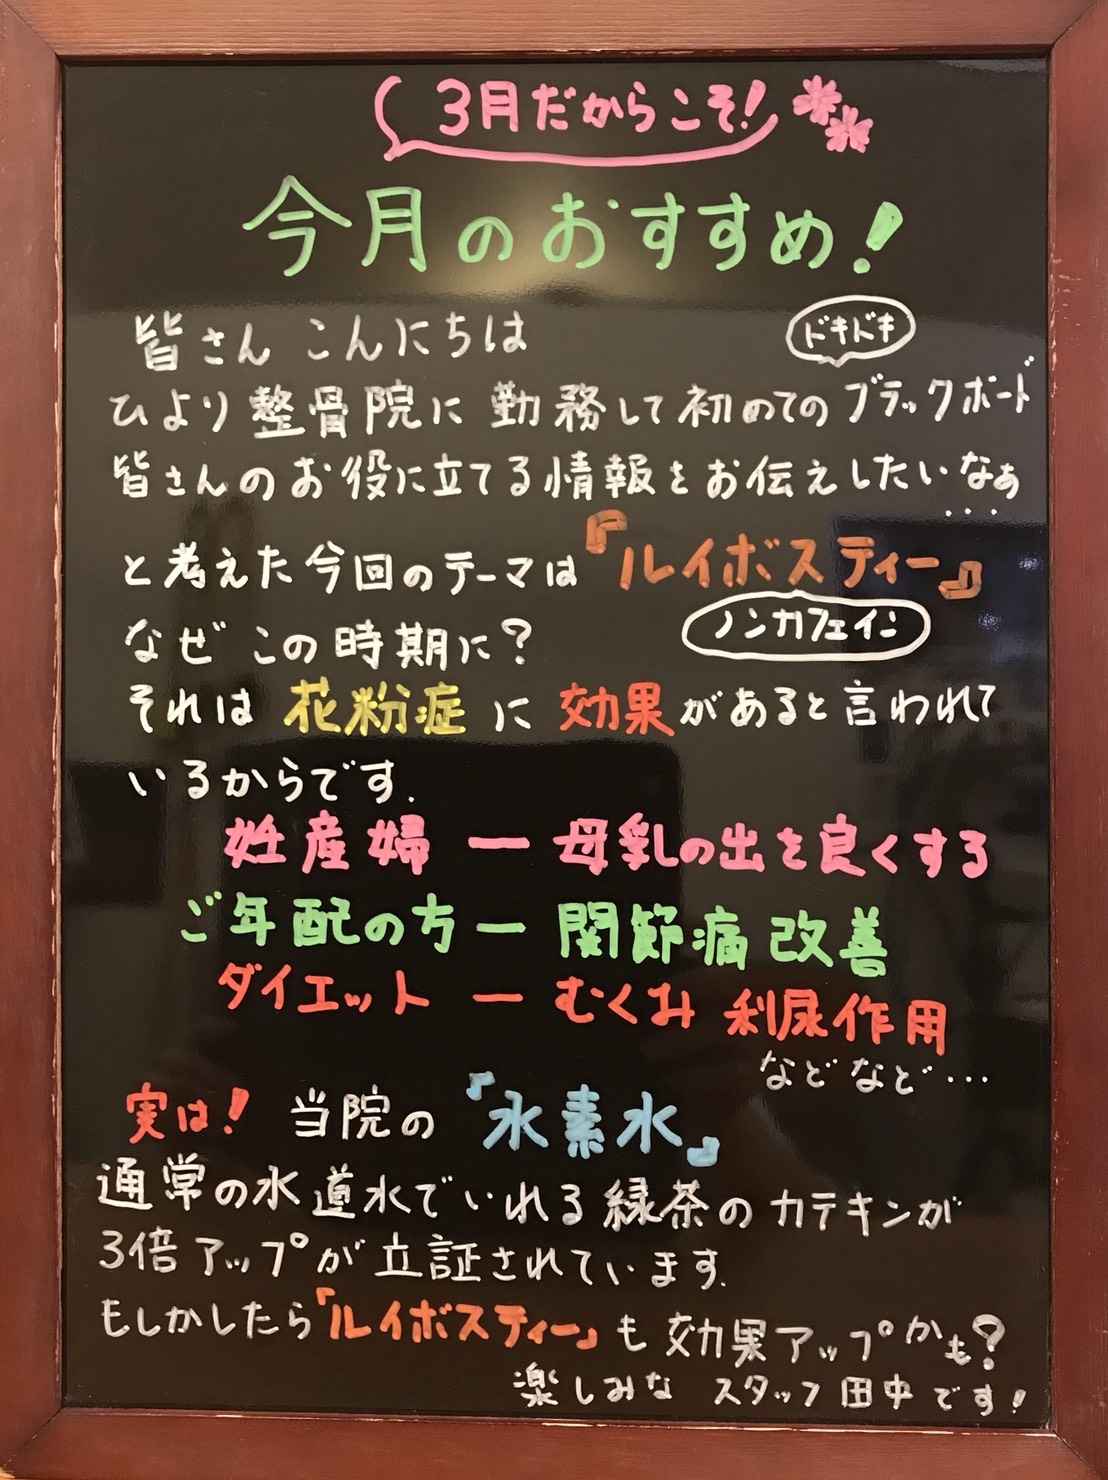 3月だからこそ!
今月のおすすめ!
皆さん こんにちは
ドキドキ
ひより整骨院に勤務して初めてのブラックボード
皆さんのお役に立てる情報をお伝えしたいなぁ
...
と考えた今回のテーマは『ルイボスティー』
ノンカフェイン
なぜこの時期に?
それは 花粉症 に 効果があると言われて
いるからです.
妊産婦 ー 母乳の出を良くする
ご年配の方 ー 関節痛 改善
ダイエット ー むくみ 利尿作用
などなど…
実は! 当院の『水素水』
通常の水道水でいれる緑茶のカテキンが
3倍アップが立証されています.
もしかしたら『ルイボスティー』も効果アップかも?
楽しみな スタッフ田中です!